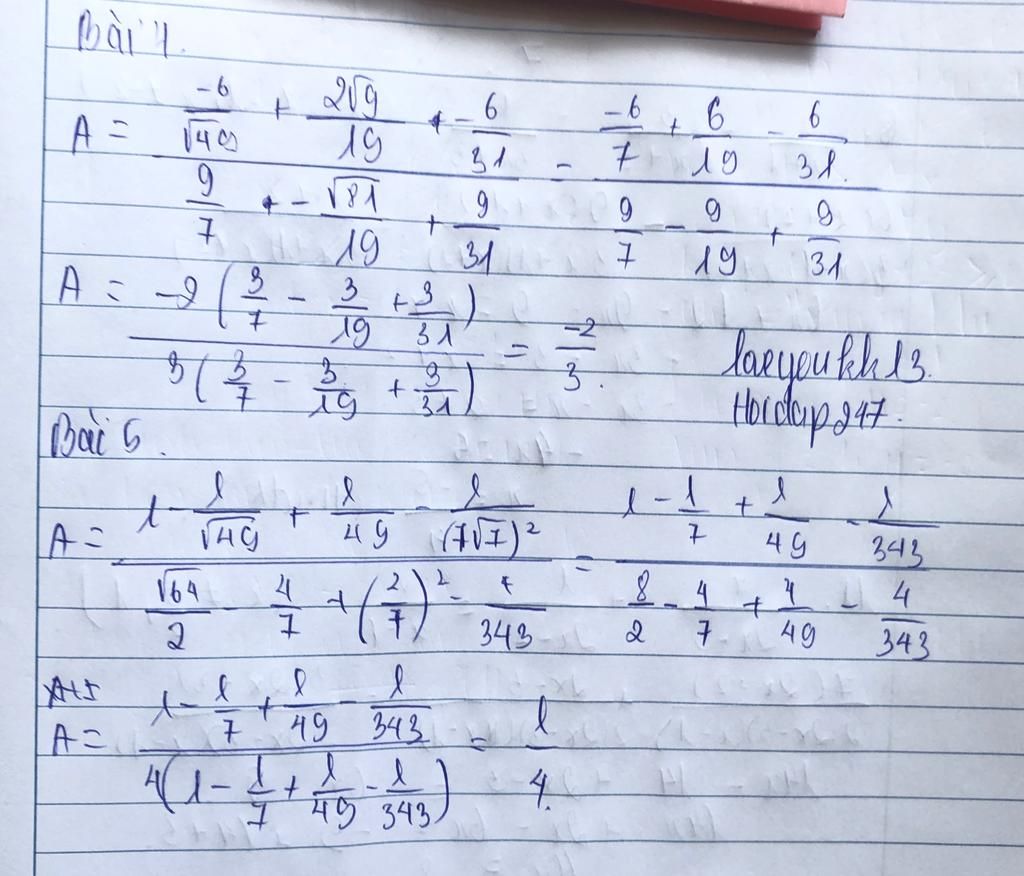 Bài 4.
A = (-6/√49 + 2√9/19 + -6/31) / (9/7 + -√81/19 + 9/31) = (-6/7 + 6/19 - 6/31) / (9/7 - 9/19 + 9/31)
A = -2(3/7 - 3/19 + 3/31) / 3(3/7 - 3/19 + 3/31) = -2/3.
taeyoukk13.
Hoidap247.
Bài 5.
A = (1 - 1/√49 + 1/49 - 1/(7√7)²) / (√64/2 - 4/7 + (2/7)² - 4/343) = (1 - 1/7 + 1/49 - 1/343) / (8/2 - 4/7 + 4/49 - 4/343)
A = (1 - 1/7 + 1/49 - 1/343) / 4(1 - 1/7 + 1/49 - 1/343) = 1/4.